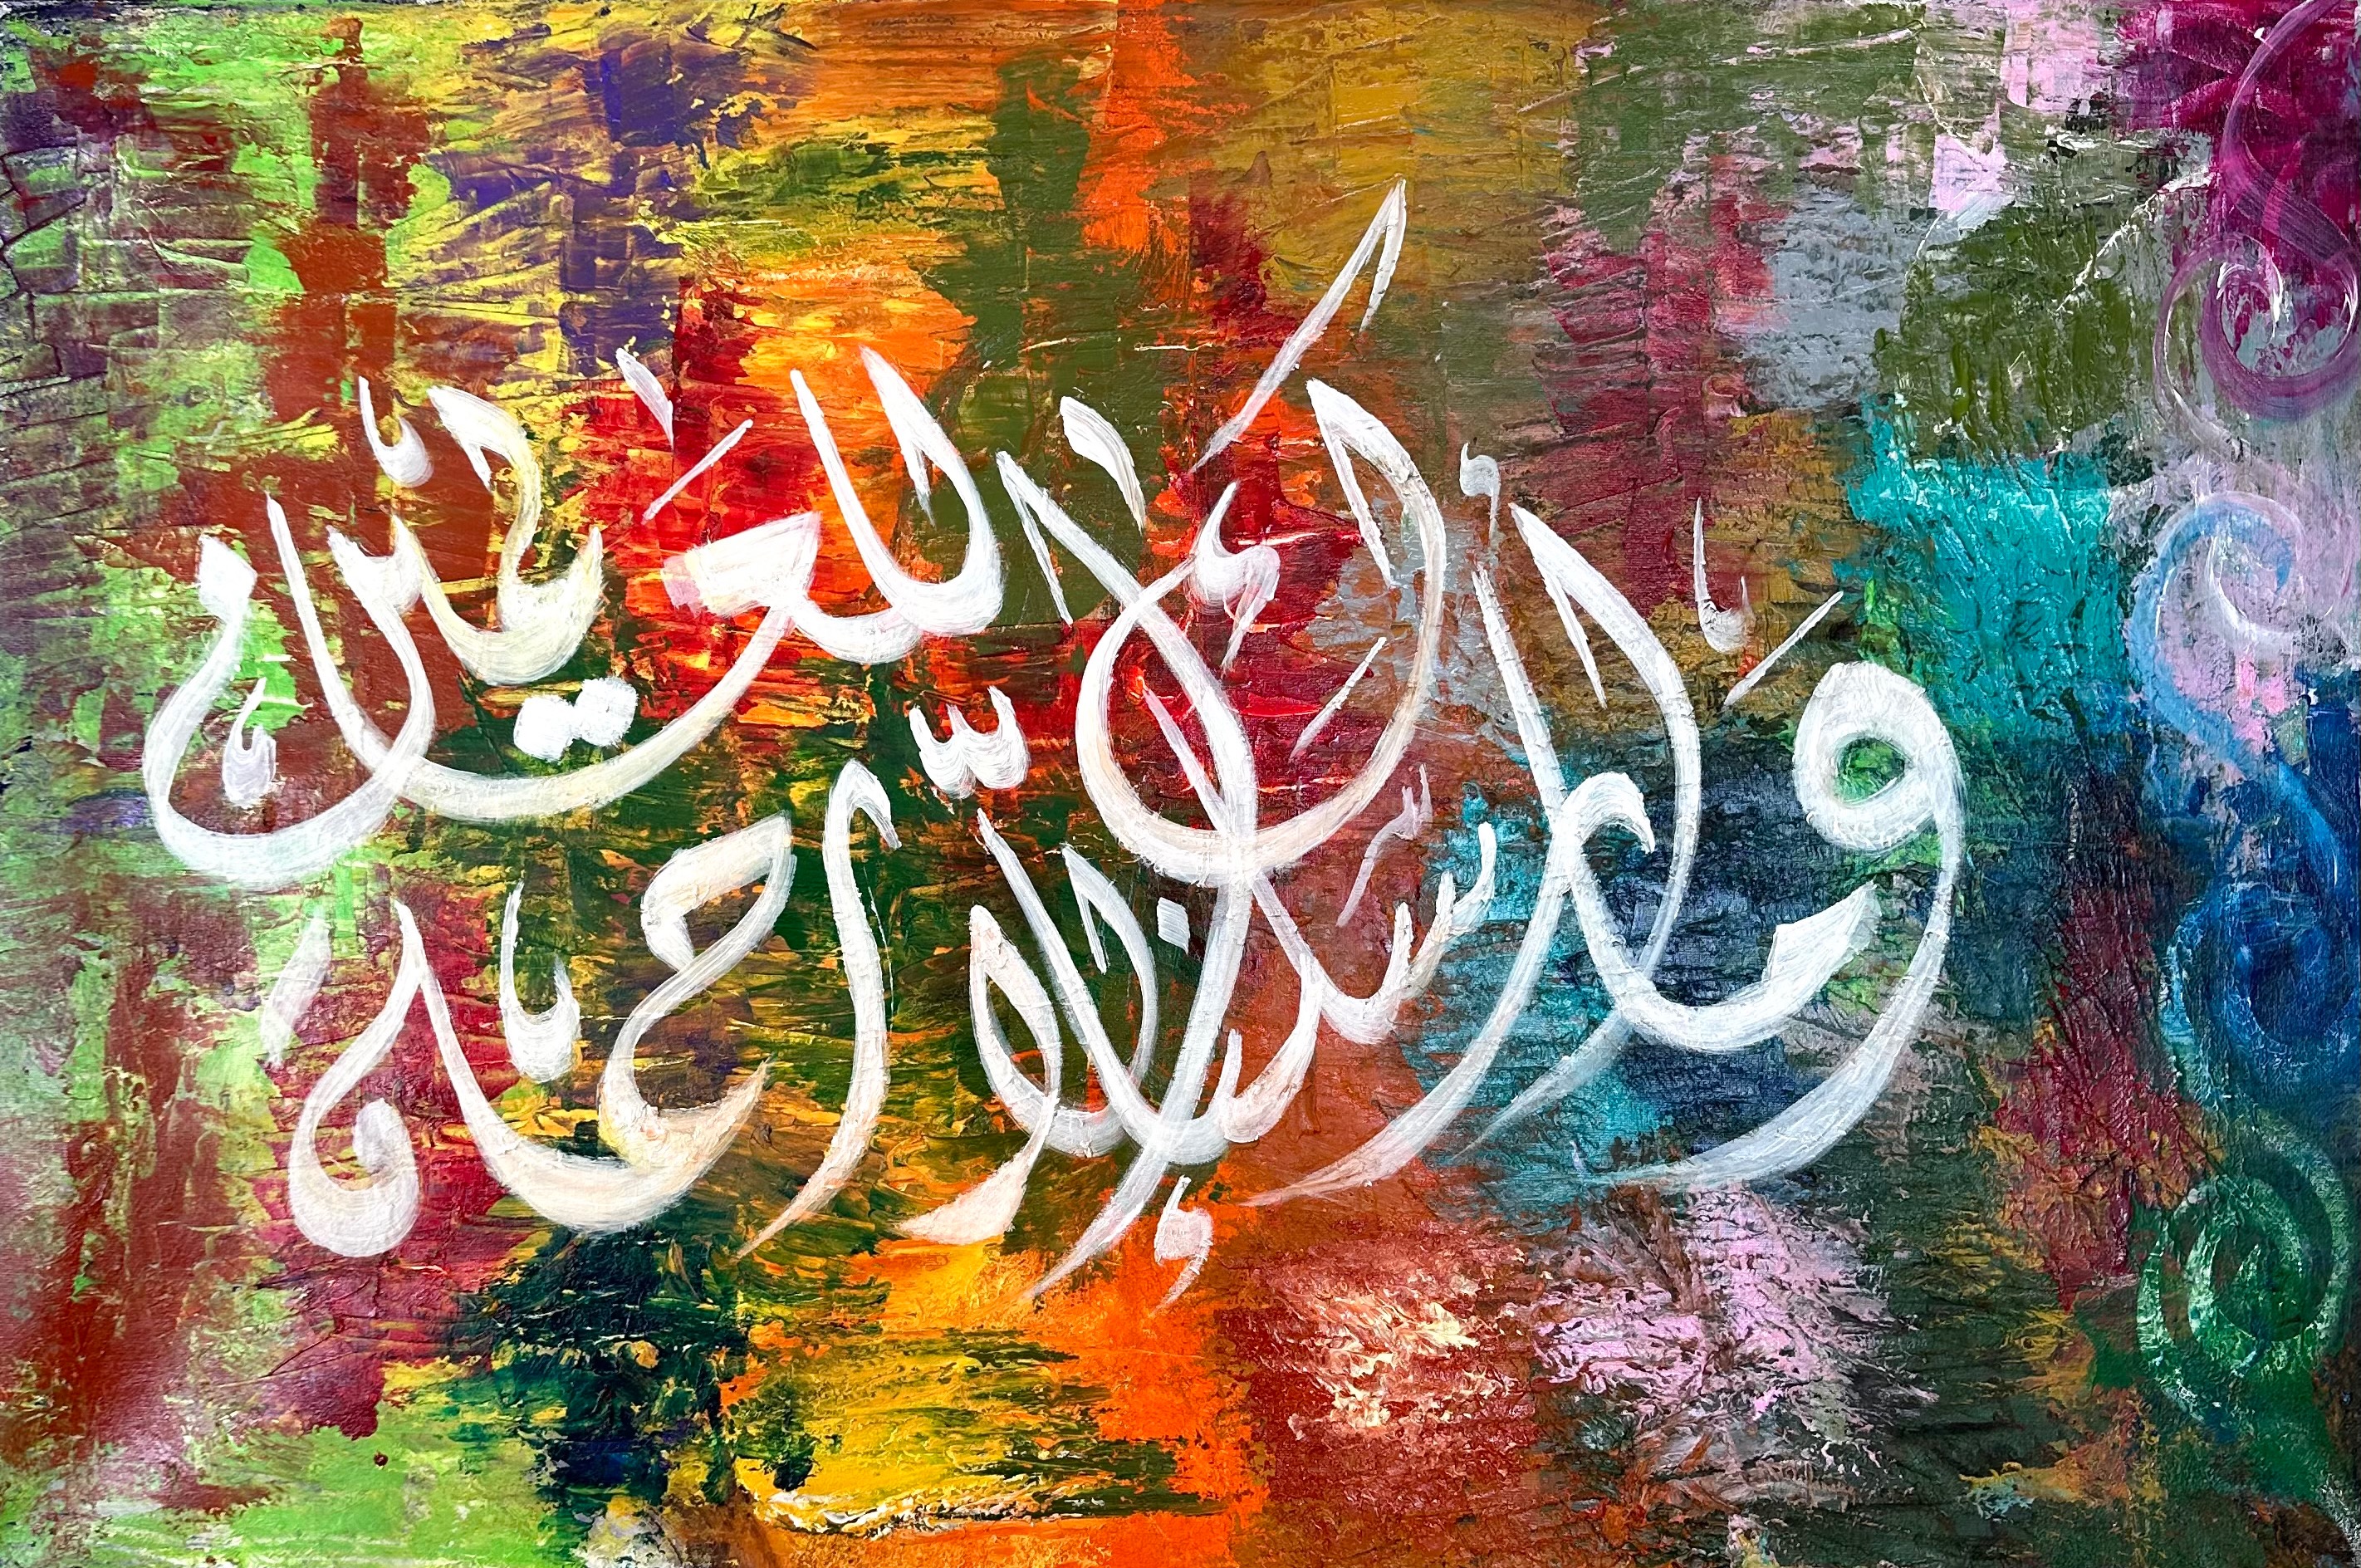 وما أرسلنك إلا رحمة للعلمين